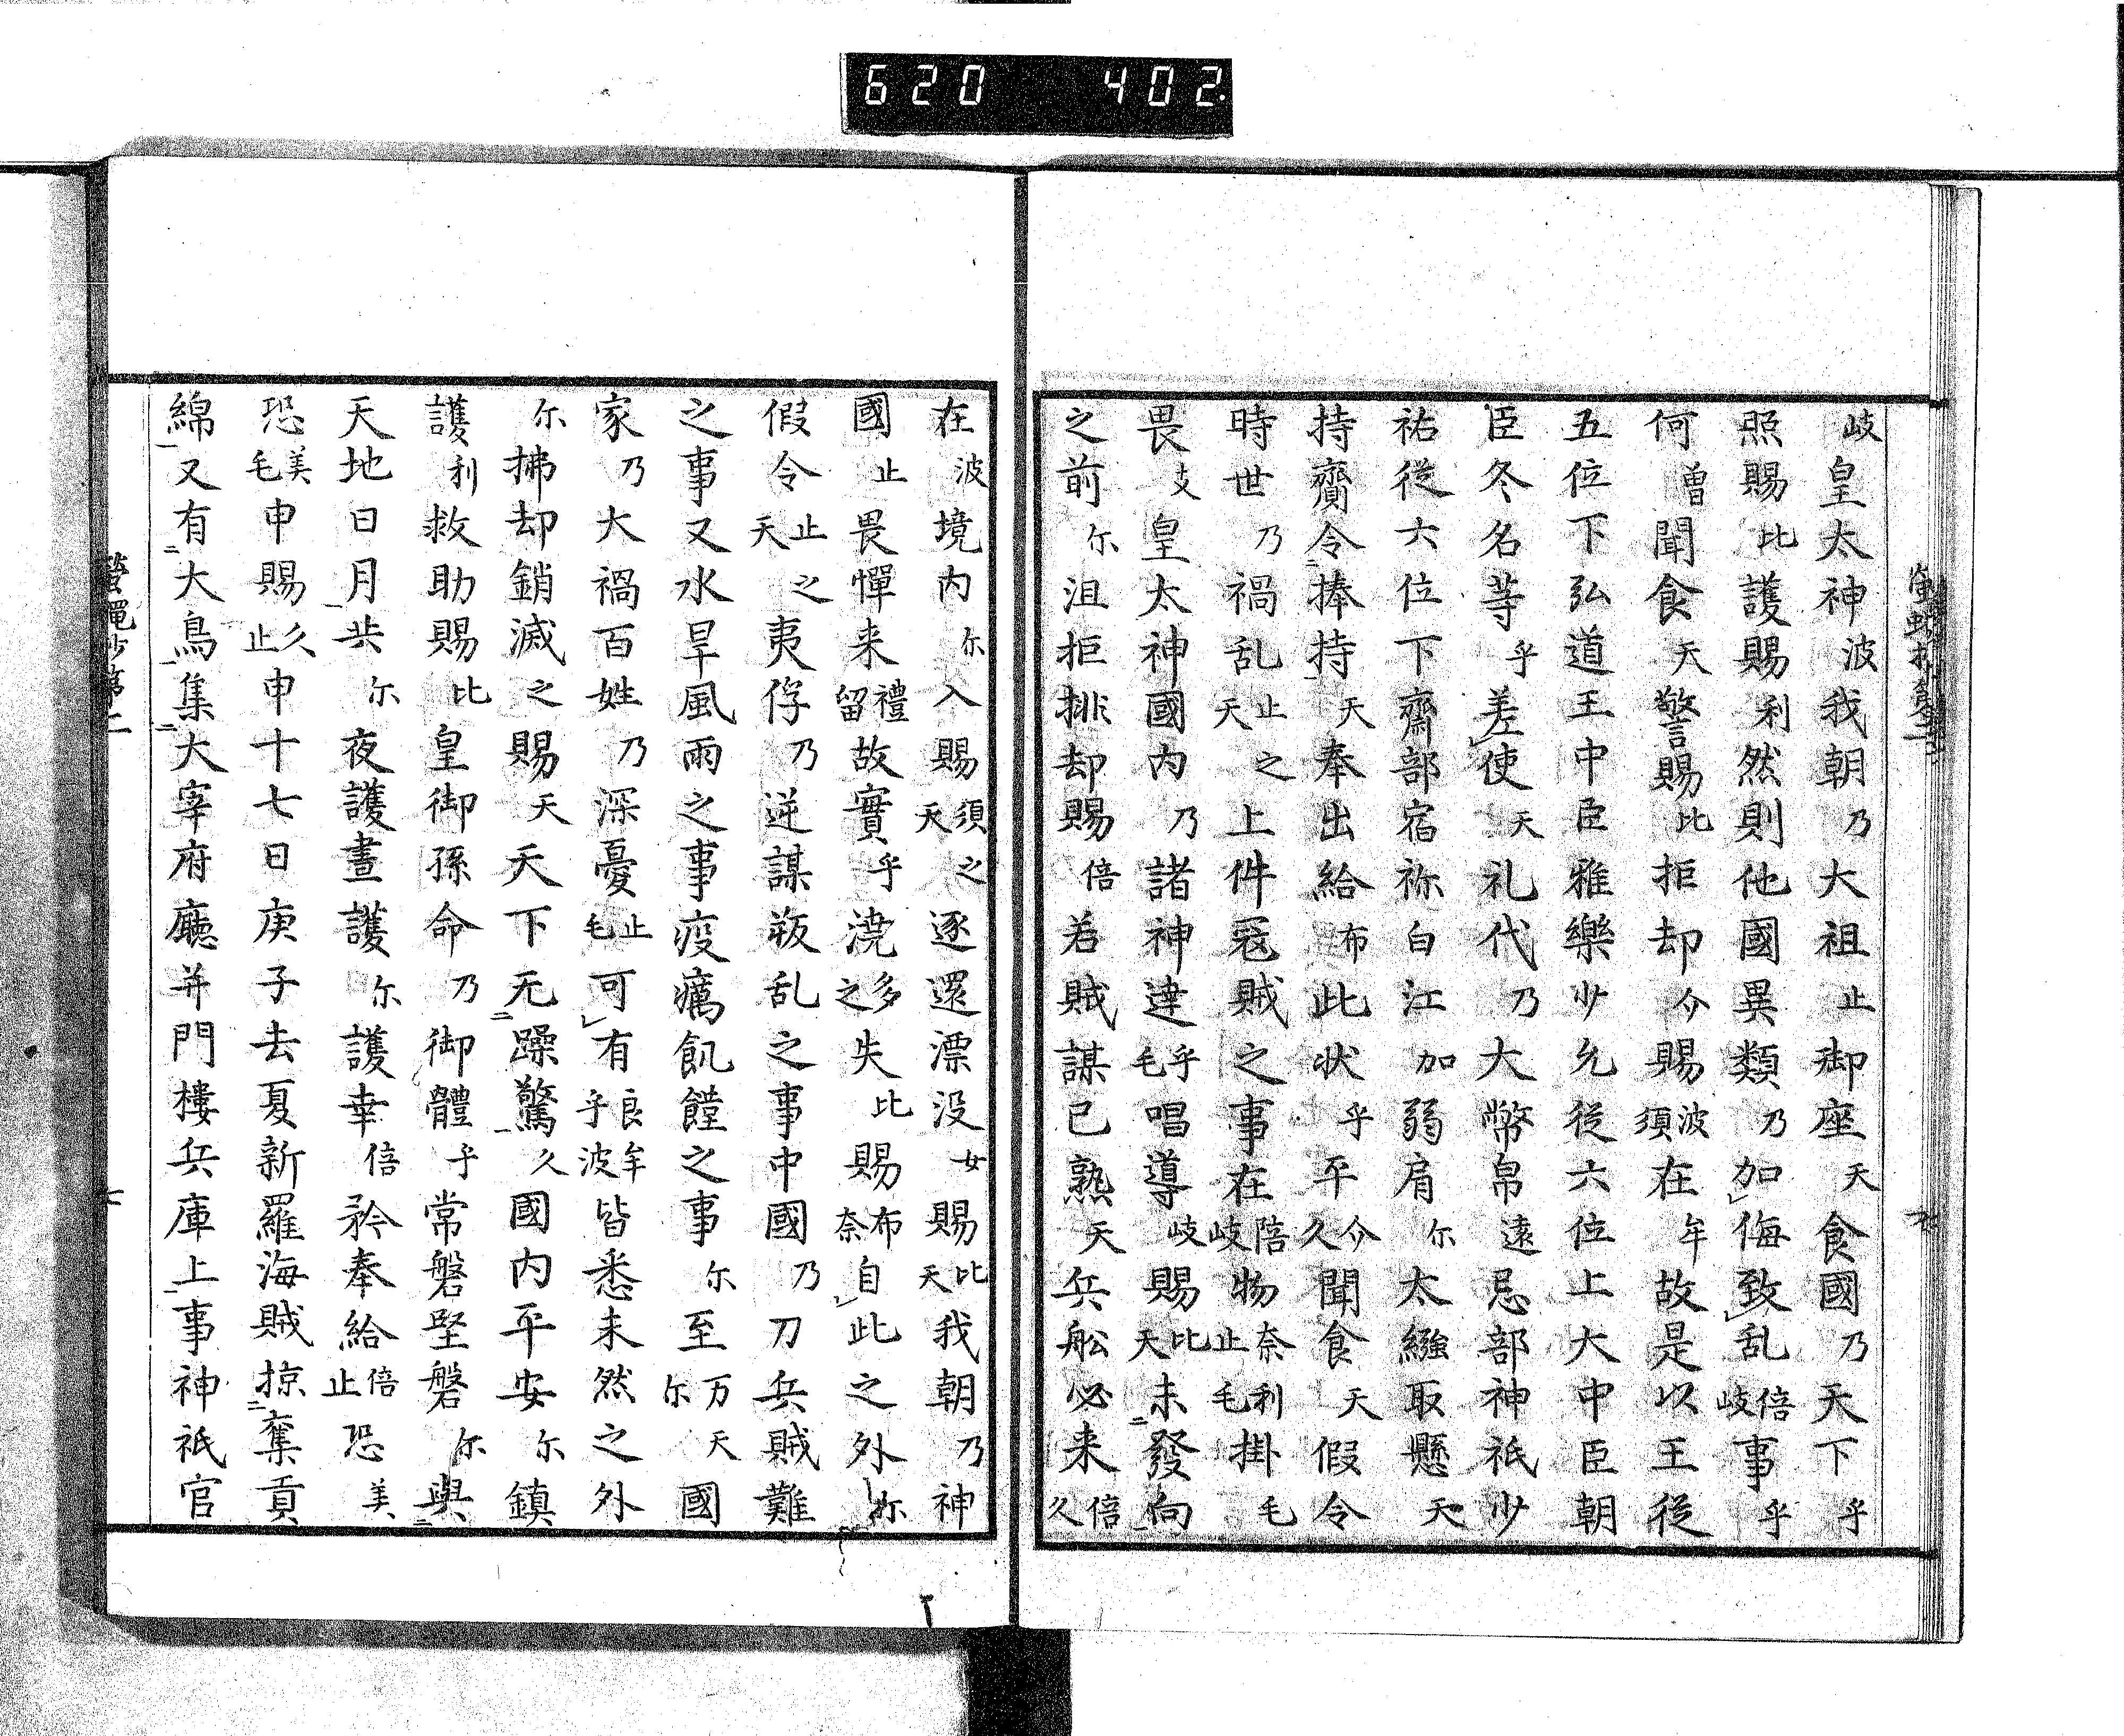 620 402
岐皇太神波我朝乃大祖止御座天食國乃天下乎
照賜比護賜利然則他國異類乃加侮致乱倍岐事乎
何曽聞食天警賜比拒却介賜波須在牟故是以王從
五位下弘道王中臣雅樂少允從六位上大中臣朝
臣冬名等乎差使天礼代乃大幣帛遠忌部神祇少
祐從六位下齋部宿祢白江加弱肩尓太繦取懸天
持齎令捧持天奉出給布此状乎平介久聞食天假令
時世乃禍乱止之天上件冦賊之事在倍岐物奈利止毛掛毛
畏支皇太神國内乃諸神達乎毛唱導岐賜比天未發向
之前尓沮拒排却賜倍若賊謀已熟天兵舩必来倍久
在波境内尓入賜須之天逐還漂没女賜比天我朝乃神
國止畏憚来禮留故實乎澆多之失比賜布奈自此之外尓
假令止之天夷俘乃逆謀叛乱之事中國乃刀兵賊難
之事又水旱風雨之事疫癘飢饉之事尓至万天尓國
家乃大禍百姓乃深憂止毛可有良牟乎波皆悉未然之外
尓拂却銷滅之賜天天下无躁驚久國内平安尓鎮
護利救助賜比皇御孫命乃御體乎常磐堅磐尓與
天地日月共尓夜護晝護尓護幸倍矜奉給倍止恐美
恐美毛申賜久止申十七日庚子去夏新羅海賊掠奪貢
綿又有大鳥集大宰府廳并門樓兵庫上事神祇官
螢蠅抄第二
七